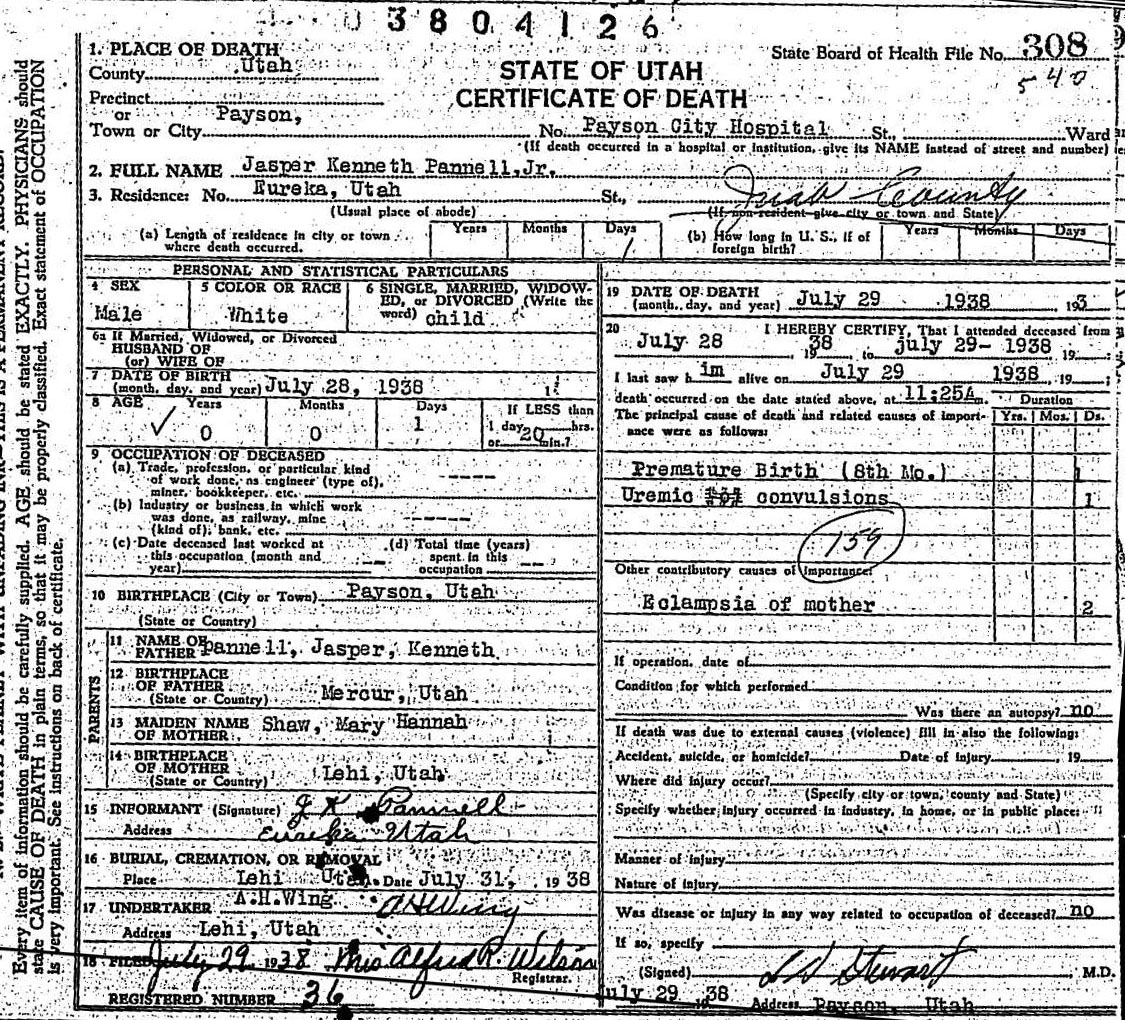 3804126
1. PLACE OF DEATH
County Utah
State Board of Health File No. 308
540
STATE OF UTAH
CERTIFICATE OF DEATH
Precinct
or
Town or City Payson, No. Payson City Hospital St., Ward
(If death occurred in a hospital or institution, give its NAME instead of street and number)
2. FULL NAME Jasper Kenneth Pannell, Jr.
3. Residence: No. Eureka, Utah St., Juab County
(Usual place of abode) (If non-resident give city or town and State)
(a) Length of residence in city or town where death occurred. Years Months Days 1
(b) How long in U. S., if of foreign birth? Years Months Days
PERSONAL AND STATISTICAL PARTICULARS
4 SEX Male
5 COLOR OR RACE White
6 SINGLE, MARRIED, WIDOWED, or DIVORCED (Write the word) child
6a If Married, Widowed, or Divorced
HUSBAND OF
(or) WIFE OF
7 DATE OF BIRTH
(month, day, and year) July 28, 1938
8 AGE Years Months Days If LESS than
0 0 1 1 day 20 hrs.
or min.?
9 OCCUPATION OF DECEASED
(a) Trade, profession, or particular kind
of work done, as engineer (type of),
miner, bookkeeper, etc. -----
(b) Industry or business in which work
was done, as railway, mine
(kind of), bank, etc. ------
(c) Date deceased last worked at
this occupation (month and
year) --
(d) Total time (years)
spent in this
occupation --
10 BIRTHPLACE (City or Town) Payson, Utah
(State or Country)
PARENTS
11 NAME OF
FATHER Pannell, Jasper, Kenneth
12 BIRTHPLACE
OF FATHER
(State or Country) Mercur, Utah
13 MAIDEN NAME
OF MOTHER Shaw, Mary Hannah
14 BIRTHPLACE
OF MOTHER
(State or Country) Lehi, Utah
15 INFORMANT (Signature) J K Pannell
Address Eureka Utah
16 BURIAL, CREMATION, OR REMOVAL
Place Lehi Utah. Date July 31, 1938
17 UNDERTAKER A.H.Wing AHWing
Address Lehi, Utah
18 FILED July 29 1938 Mrs Alfred R. Wilson
Registrar.
REGISTERED NUMBER 36
19 DATE OF DEATH
(month, day, and year) July 29 1938 193
20 I HEREBY CERTIFY, That I attended deceased from
July 28 38, 19 to july 29- 1938, 19 ;
I last saw h im alive on July 29 1938, 19 ;
death occurred on the date stated above, at 11:25A m. Duration
The principal cause of death and related causes of importance were as follows: Yrs. Mos. Ds.
Premature Birth (8th Mo.) 1
Uremic convulsions 1
159
Other contributory causes of importance:
Eclampsia of mother 2
If operation, date of
Condition for which performed
Was there an autopsy? no
If death was due to external causes (violence) fill in also the following:
Accident, suicide, or homicide? Date of injury , 19
Where did injury occur?
(Specify city or town, county and State)
Specify whether injury occurred in industry, in home, or in public place:
Manner of injury
Nature of injury
Was disease or injury in any way related to occupation of deceased? no
If so, specify
(Signed) Stewart M.D.
July 29 38 Address Payson, Utah
Every item of information should be carefully supplied. AGE should be stated EXACTLY. PHYSICIANS should
state CAUSE OF DEATH in plain terms, so that it may be properly classified. Exact statement of OCCUPATION
is very important. See instructions on back of certificate.